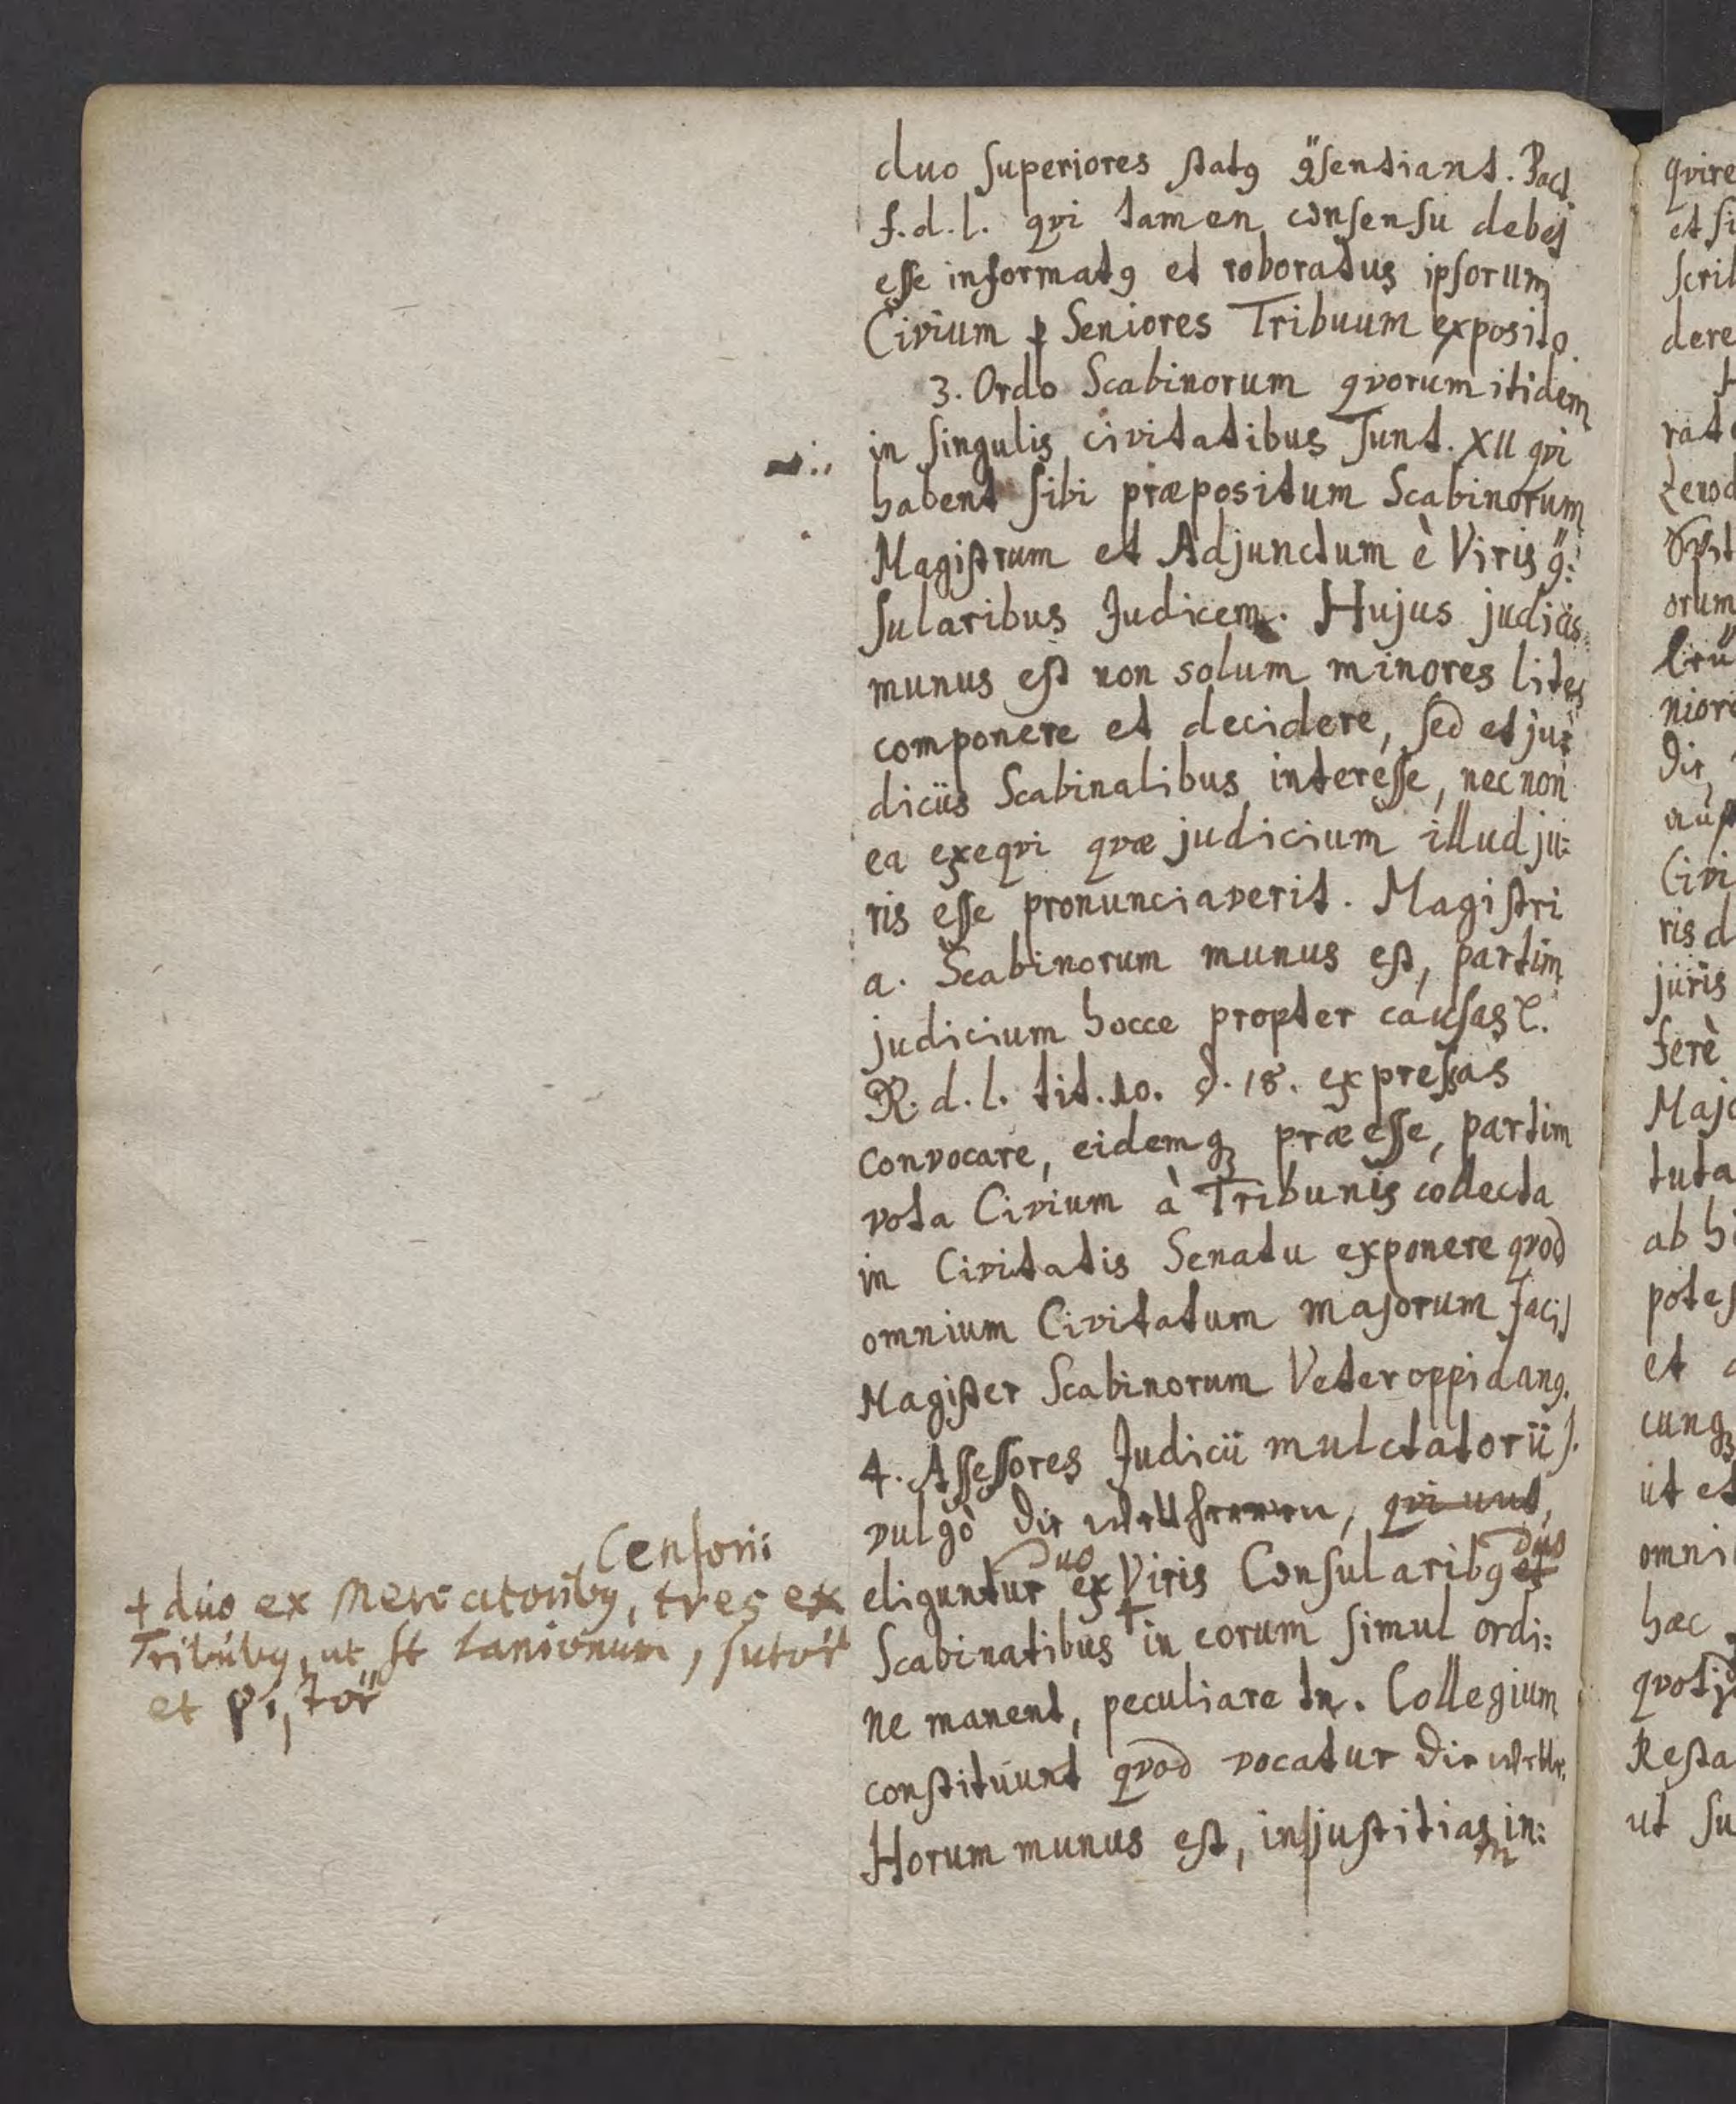 duo superiores statꝯ ꝯsentiant. Pact.
f. d. l. qvi tamen consensu debet
esse informatꝯ et roboratus ipsorum
Civium ꝑ Seniores Tribuum exposito.
3. Ordo Scabinorum qvorum itidem
in singulis civitatibus sunt. XII qvi
habent sibi præpositum Scabinorum
Magistrum et Adjunctum è Viris ꝯ:
sularibus Judicem. Hujus judicis
munus est non solum minores lites
componere et decidere, sed et ju:
diciis Scabinalibus interesse, nec non
ea exeqvi qvæ judicium illud ju:
ris esse pronunciaverit. Magistri
a. Scabinorum munus est, partim
judicium hocce propter causas
R. d. l. tit. 10. §. 18. expressas
convocare, eidemqꝫ præesse, partim
vota Civium à Tribunis collecta
in Civitatis Senatu exponere qvod
omnium Civitatum majorum facit
Magister Scabinorum Veteroppidanꝯ.
4. Assessores Judicii mulctatorii s.
vulgò Die, qvi
eliguntur duo ex Viris Consularibꝯ et duo
Scabinatibus + in eorum simul ordi:
ne manent, peculiare tn. Collegium
constituunt qvod vocatur Die
Horum munus est, injustitiam in:
Censori:
+ duo ex Mercatoribꝯ, tres ex
Tribubꝯ, ut st Lanionum, sutor
et pistor